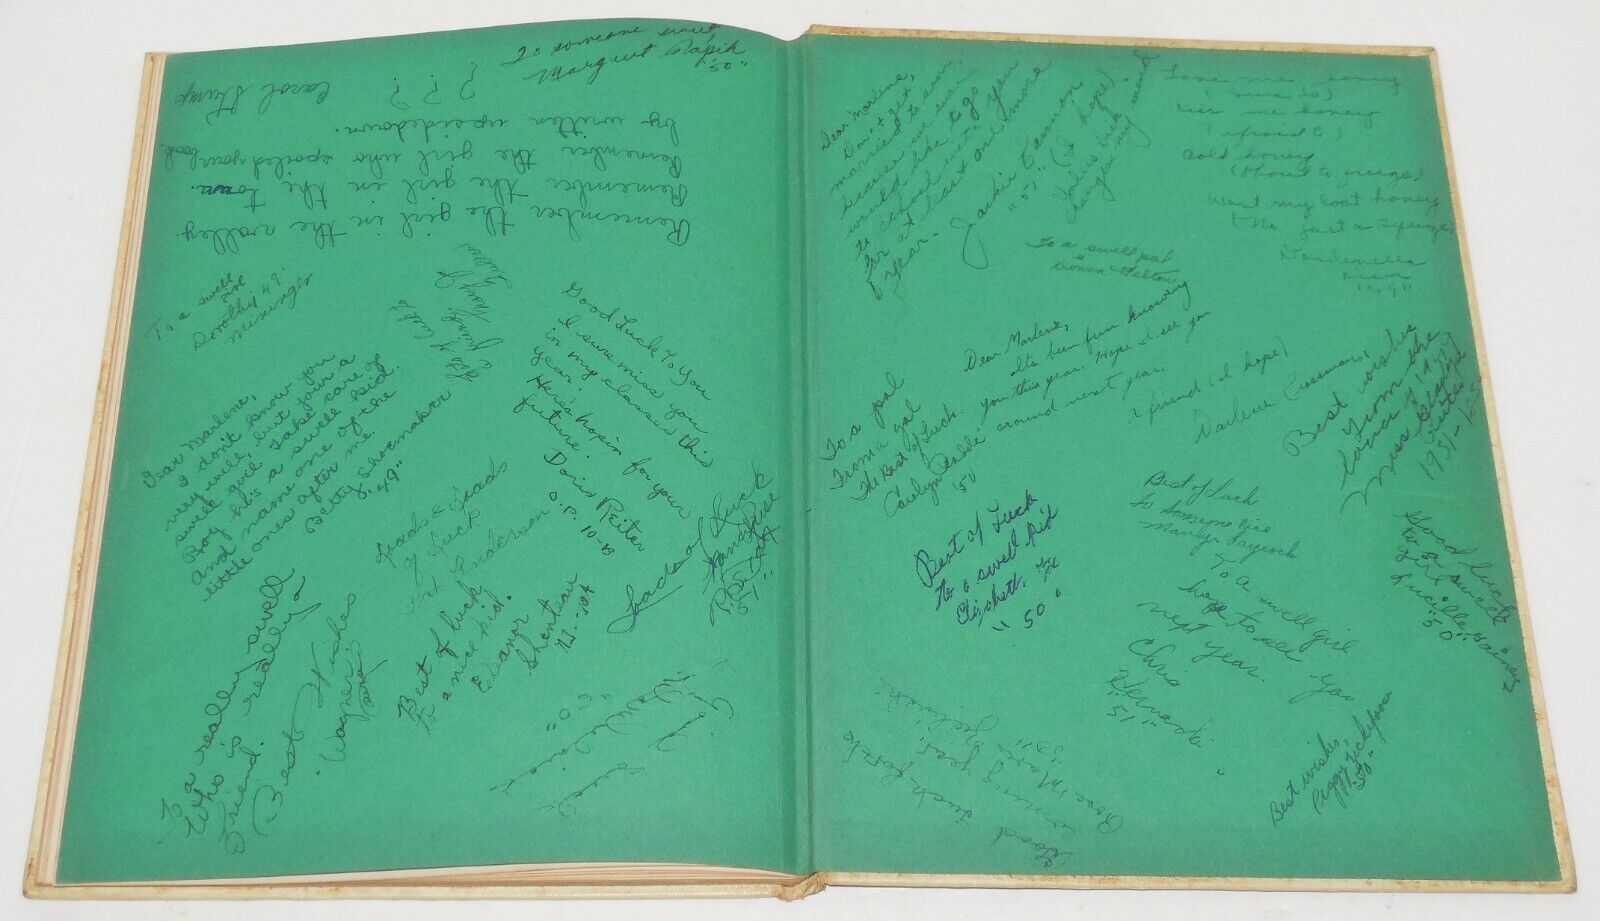 To someone sweet
Margaret
"50"
Remember the girl in the valley.
Remember the girl in the town.
Remember the girl who spoiled your book.
by written upsidedown.
? ? ?
Carol Stump
To a swell
girl
Dorothy 49.
Mininger
Lots of luck to
a
Dear Marlene,
I don't know you
very well, but your a
swell girl. Take care of
Boy he's a swell kid.
And name one of the
little ones after me.
Betty Shoemaker
"49"
Good Luck To You
I sure miss you
in my classes this
year!
Here's hopin for your
future.
Doris Reiter
O.P. 10-B
Loads & Loads
of Luck
Pat Anderson
Best of luck
to a nice kid.
Eleanor
11-104
Loads of Luck
To a really swell
Who is really a
friend.
Best Wishes
Wagner
Good Luck
"50"
Dear Marlene,
Don't get
married to soon,
because we sure
would like to go
to school with you
for at least one more
year.
Jackie Cannon
"51" (I hope)
Unless Dick
changes my mind
Love me honey
(sure do)
Kiss me honey
(afraid to)
Cold honey
(About to freeze)
Want my coat honey
(No just a squeeze)
Dardenella
"49"
To a swell pal
Donna Melton
Dear Marlene,
It's been fun knowing
you this year. Hope I see you
around next year.
A friend (I hope)
Darlene Cussman,
To a pal
From a gal
The Best of Luck.
Carolyn
'50
Best wishes
from the
Miss
1931-
Best of Luck
To a swell kid
Elizabeth Fox
"50"
Best of Luck
To Someone Nice
Marilyn Laycock
To a swell girl
hope to see you
next year.
Chris
"51"
Good luck
to a swell
girl
Lucille Gainey
"50"
Good luck for the
coming year,
Rose Mary
Best wishes,
Peggy Zickefoose
'50'